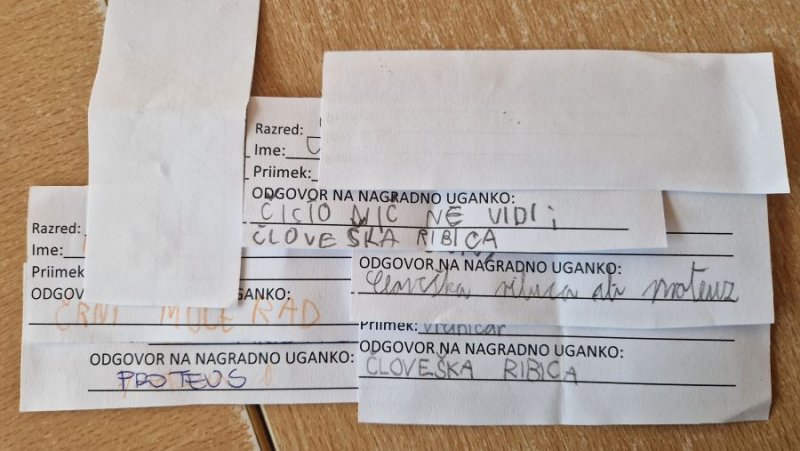 Razred:
Ime:
Priimek:
ODGOVOR NA NAGRADNO UGANKO:
ČISTO NIČ NE VIDI;
ČLOVEŠKA RIBICA
Razred:
Ime:
Priimek
ODGOV NAGRADNO UGANKO:
ČRNI MOČERAD
ODGOVOR NA NAGRADNO UGANKO:
PROTEUS
ODGOVOR NA NAGRADNO UGANKO:
človeška ribica ali proteuz
Priimek:
ODGOVOR NA NAGRADNO UGANKO:
ČLOVEŠKA RIBICA